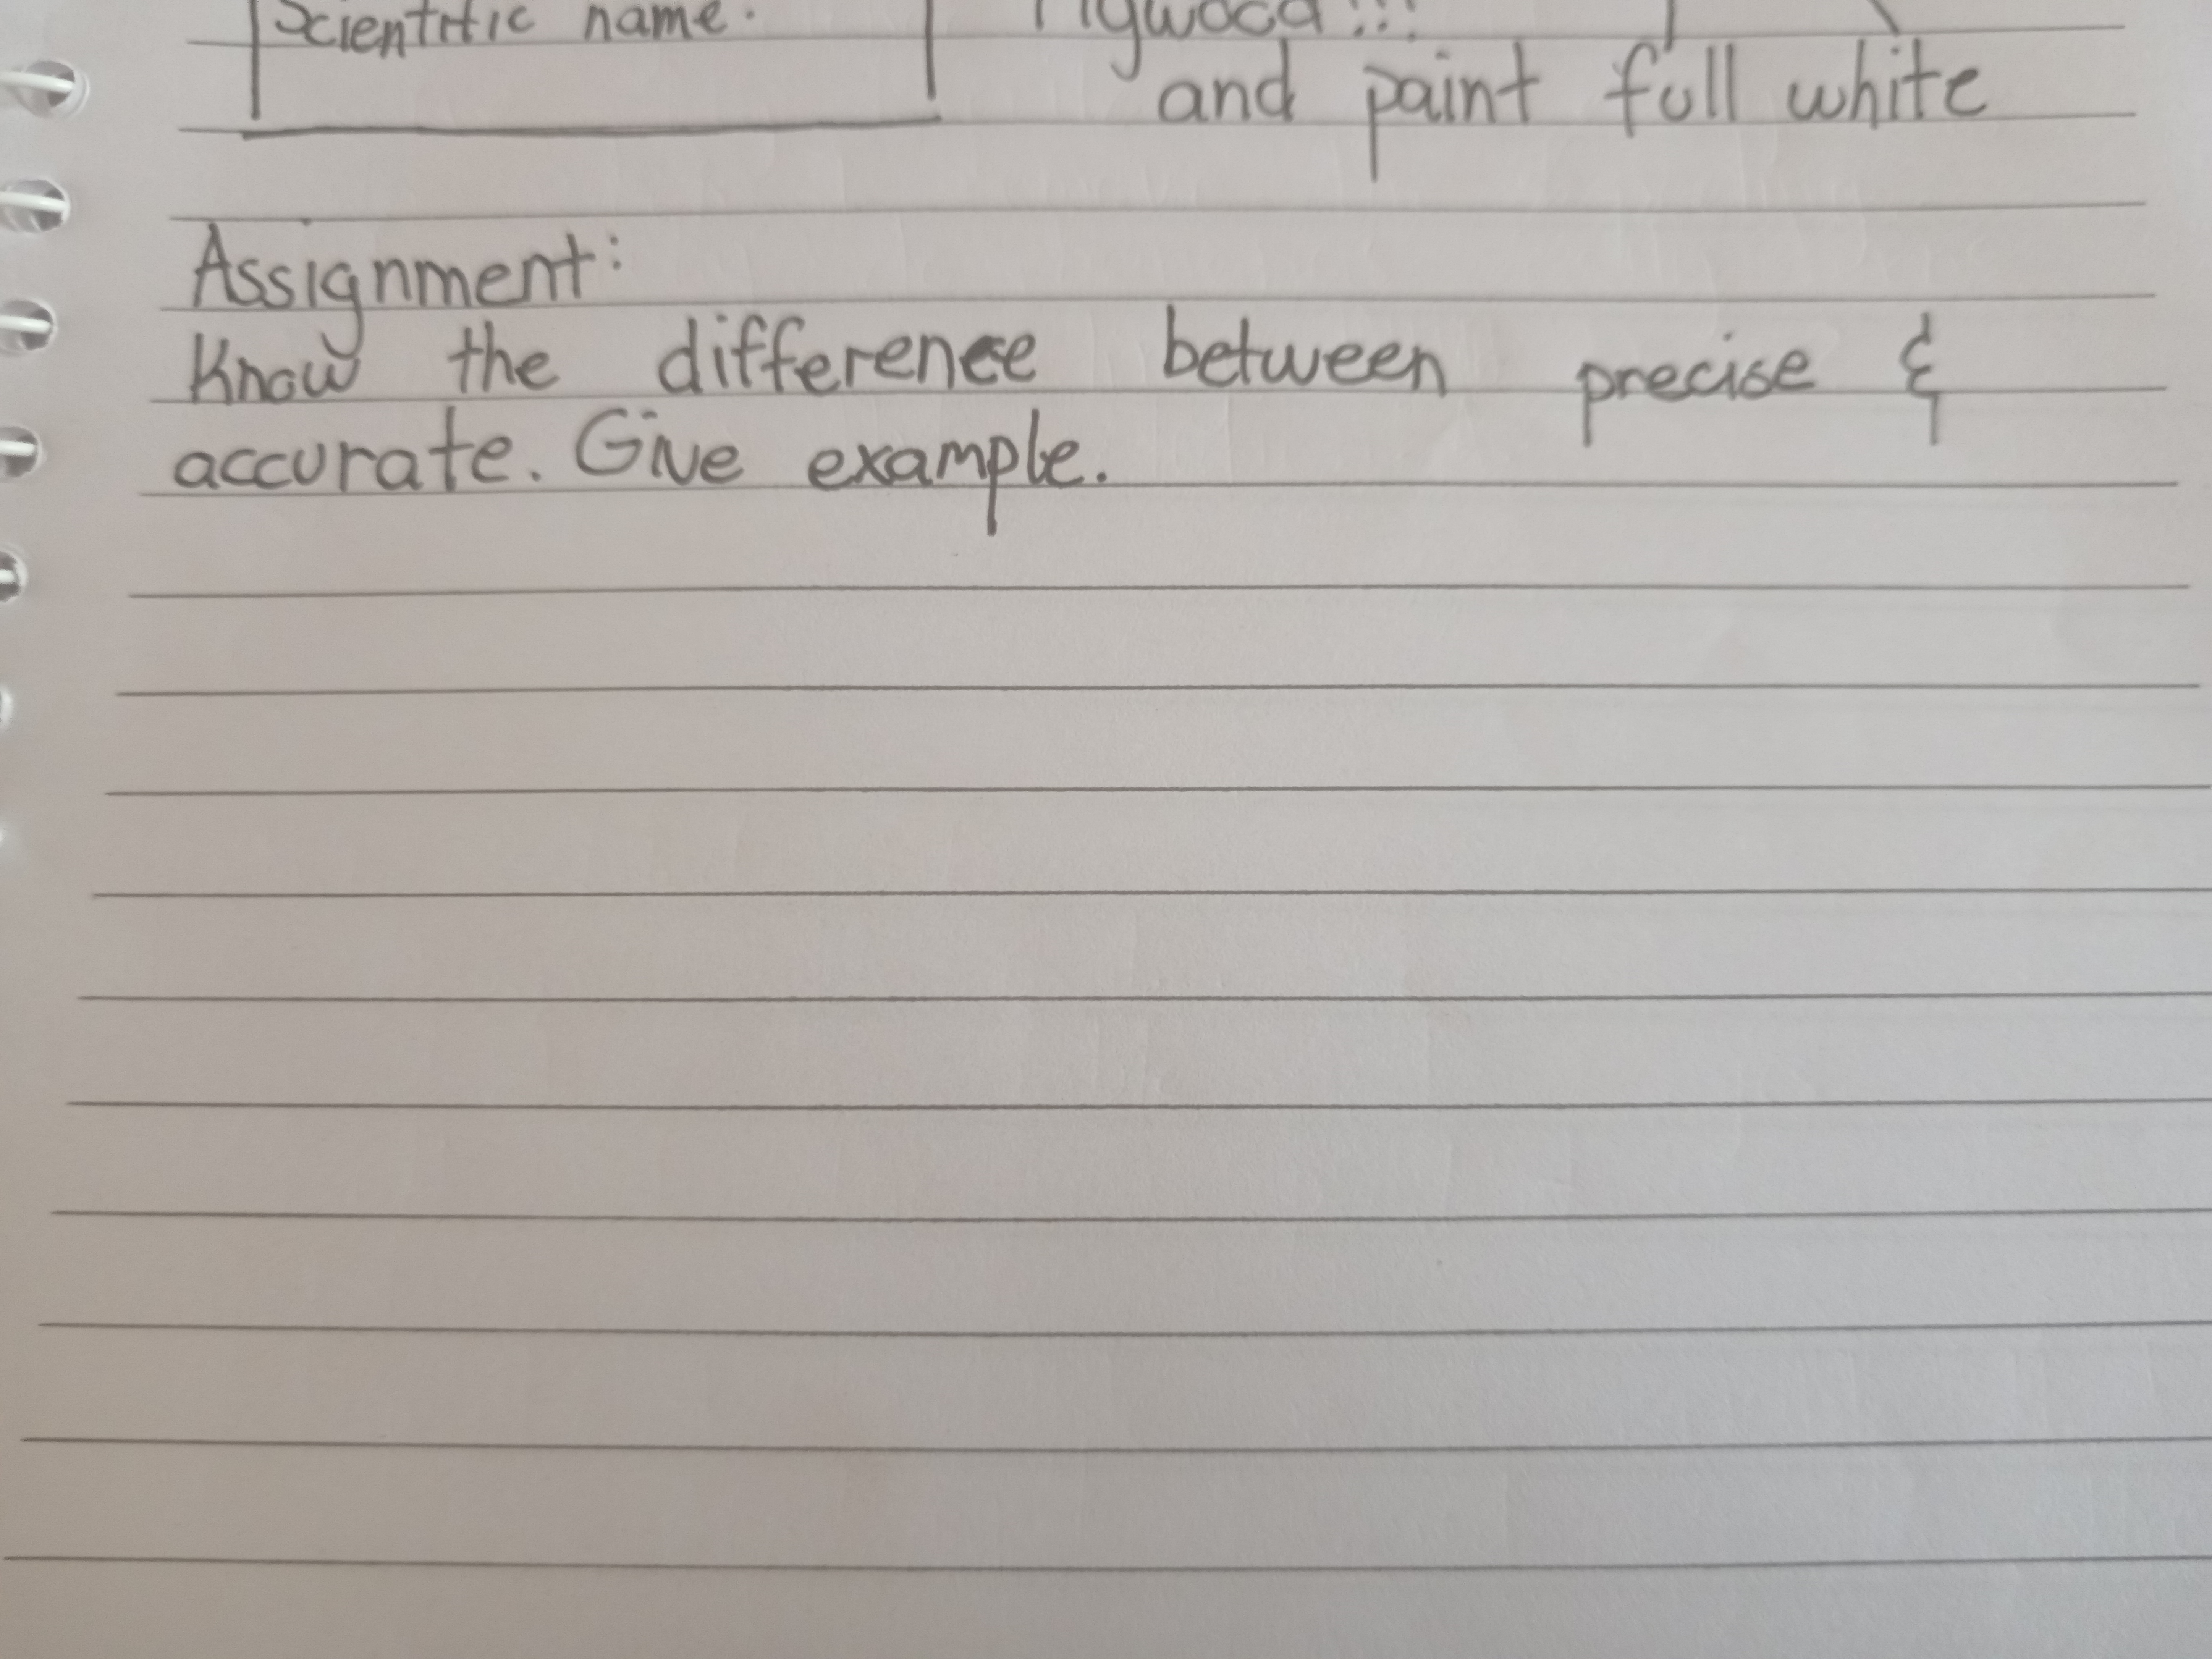 Scientific name:
and paint full white
Assignment:
Know the difference between precise &
accurate. Give example.